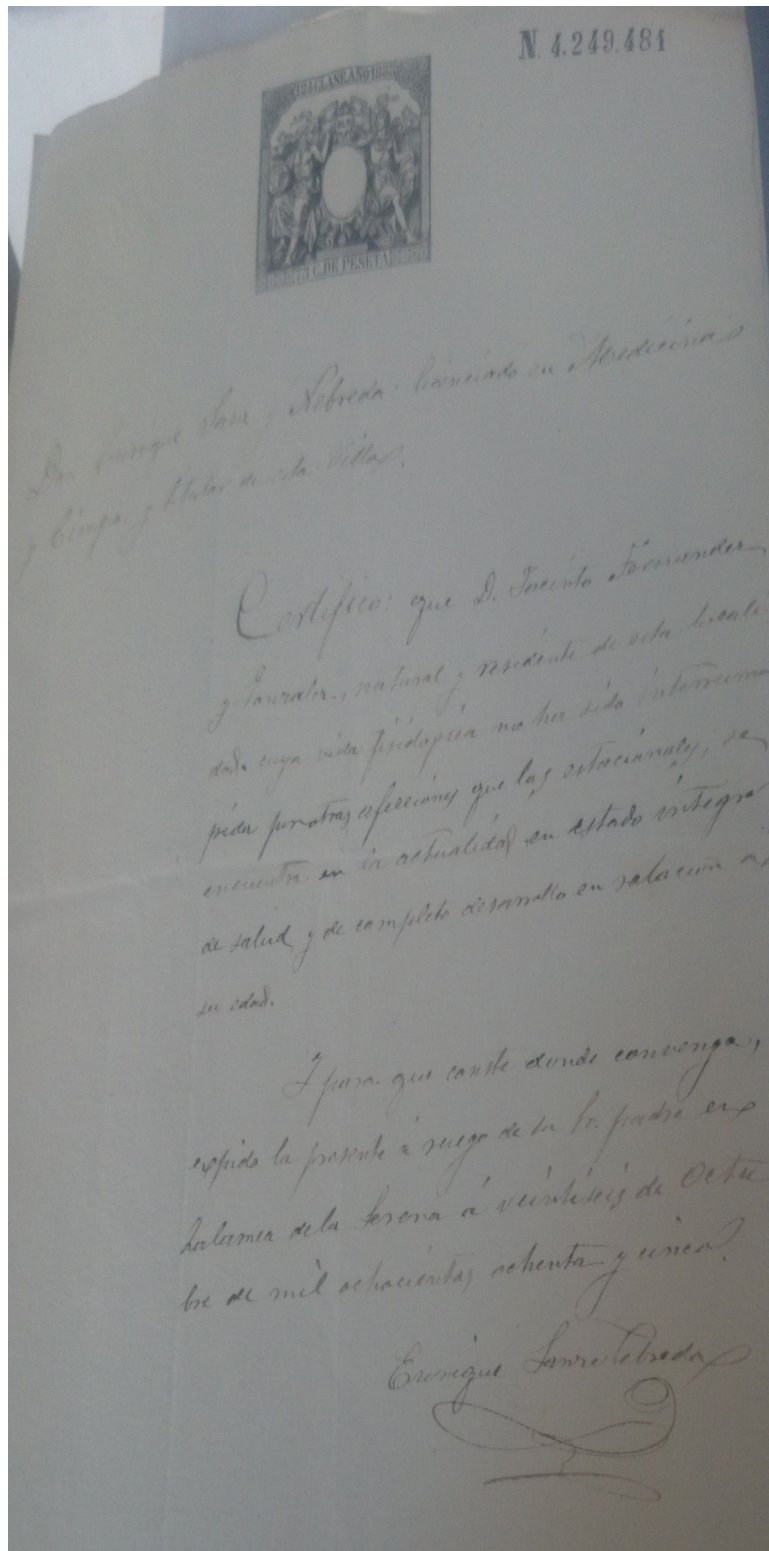 N. 4.249.481
12ª CLASE AÑO 188
C. DE PESETA
Don Enrique Sanz y Nebreda licenciado en Medicina
y Cirugía y titular de esta Villa.
Certifico: que D. Jacinto Fernandez
y Gonzalez, natural y residente de esta locali
dad, cuya vida fisiologica no ha sido interrum
pida por otras afecciones que las estacionales, se
encuentra en la actualidad en estado íntegro
de salud y de completo desarrollo en relación á
su edad.
Y para que conste donde convenga,
expido la presente á ruego de su Sr. padre en
Zalamea de la Serena á veintiseis de Octu
bre de mil ochocientos ochenta y cinco.
Enrique Sanz Nebreda